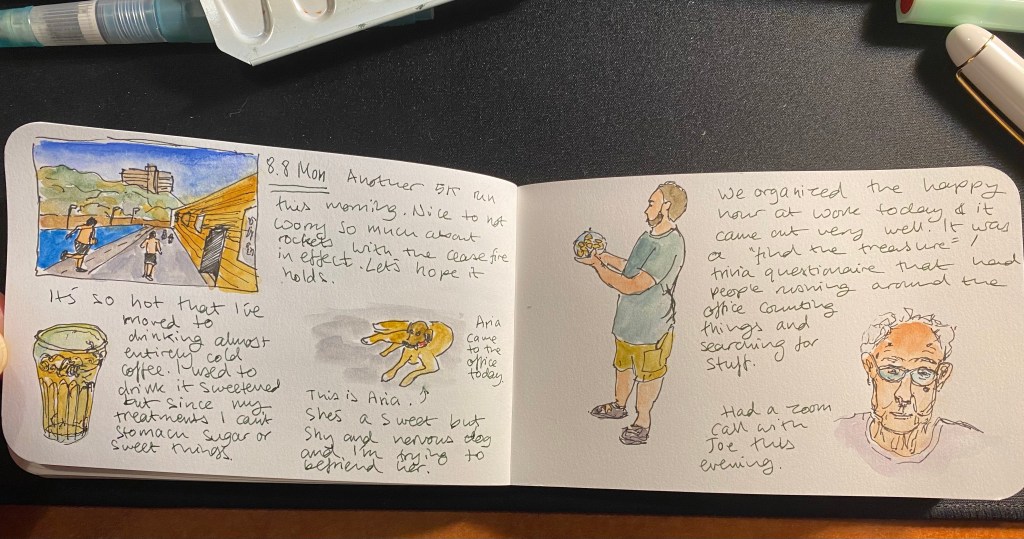 8.8 Mon Another 5K run
this morning. Nice to not
worry so much about
rockets with the ceasefire
in effect. Let's hope it
holds.
It's so hot that I've
moved to
drinking almost
entirely cold
coffee. I used to
drink it sweetened
but since my
treatments I can't
stomach sugar or
sweet things.
Aria
came to
the
office
today.
This is Aria.
She's a sweet but
shy and nervous dog
and I'm trying to
befriend her.
We organized the happy
hour at work today & it
came out very well. It was
a "find the treasure" /
trivia questionaire that had
people running around the
office counting
things and
searching for
stuff.
Had a zoom
call with
Joe this
evening.